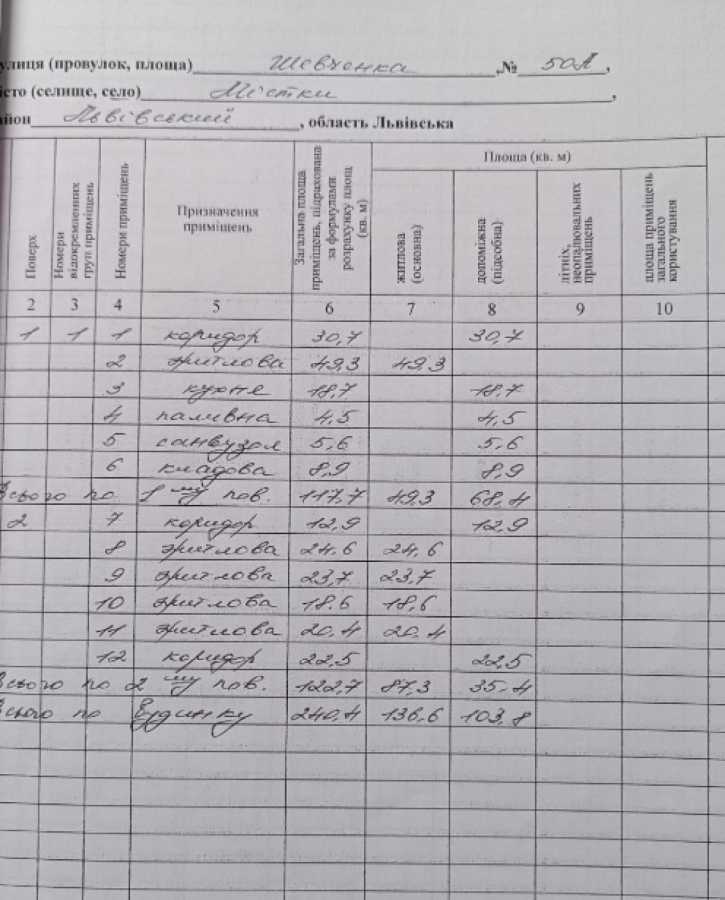 улиця (провулок, площа) Шевченка ,№ 50А ,
істо (селище, село) Містки ,
айон Львівський , область Львівська
Поверх
Номери відокремленних груп приміщень
Номери приміщень
Призначення приміщень
Загальна площа приміщень, підрахована за формулами розрахунку площ (кв. м)
Площа (кв. м)
житлова (основна)
допоміжна (підсобна)
літніх, неопалювальних приміщень
площа приміщень загального користування
2 3 4 5 6 7 8 9 10
1 1 1 коридор 30,7 30,7
2 житлова 49,3 49,3
3 кухне 18,7 18,7
4 паливна 4,5 4,5
5 санвузол 5,6 5,6
6 кладова 8,9 8,9
Всього по 1 му пов. 117,7 49,3 68,4
2 7 коридор 12,9 12,9
8 житлова 24,6 24,6
9 житлова 23,7 23,7
10 житлова 18,6 18,6
11 житлова 20,4 20,4
12 коридор 22,5 22,5
Всього по 2 му пов. 122,7 87,3 35,4
Всього по будинку 240,4 136,6 103,8